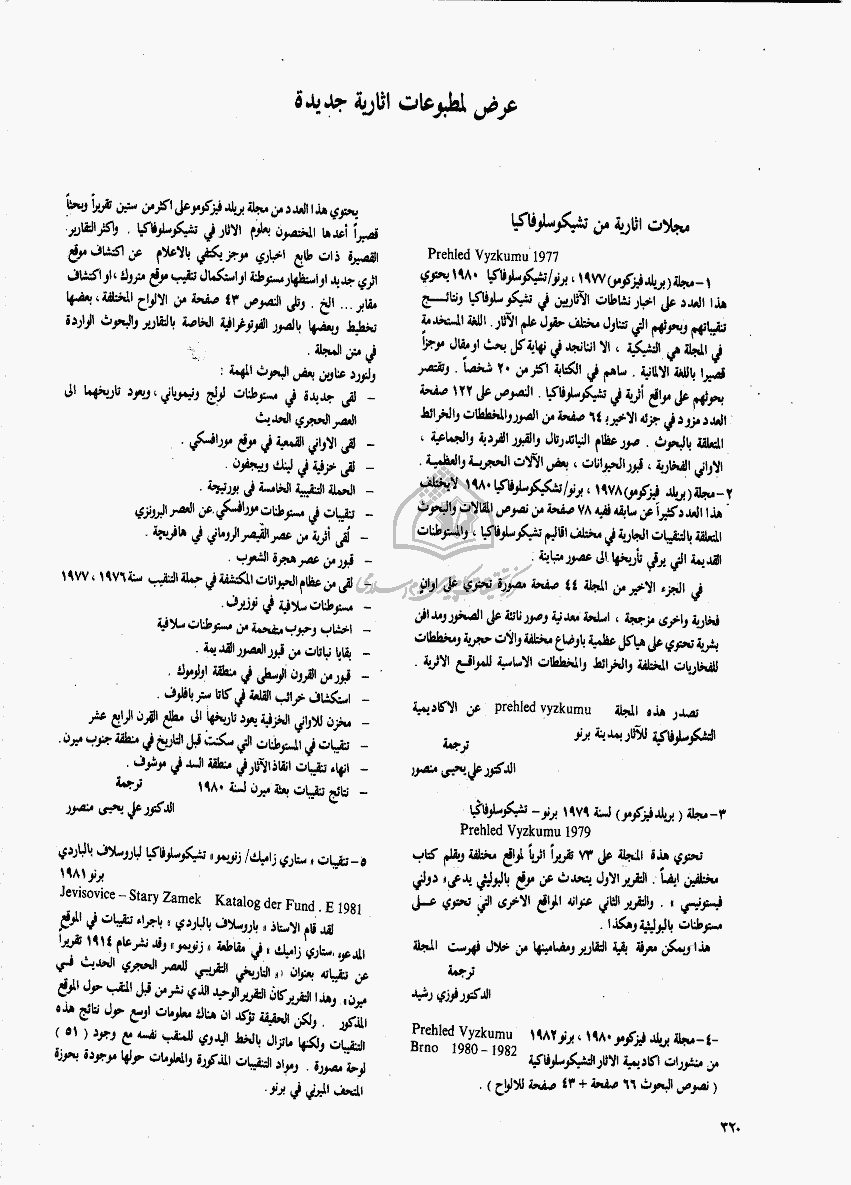 عرض لمطبوعات اثارية جديدة
مجلات اثارية من تشيكوسلوفاكيا
Prehled Vyzkumu 1977
١ - مجلة (بريلد فيزكومو) ١٩٧٧ ، برنو/تشيكوسلوفاكيا ١٩٨٠ يحتوي
هذا العدد على اخبار نشاطات الآثاريين في تشيكوسلوفاكيا ونتائـج
تنقيباتهم وبحوثهم التي تتناول مختلف حقول علم الآثار . اللغة المستخدمة
في المجلة هي التشيكية ، الا اننانجد في نهاية كل بحث او مقال موجزاً
قصيرا باللغة الالمانية . ساهم في الكتابة اكثر من ٢٠ شخصاً . وتقتصر
بحوثهم على مواقع أثرية في تشيكوسلوفاكيا . النصوص على ١٢٢ صفحة
العدد مزود في جزئه الاخير بـ ٦٤ صفحة من الصور والمخططات والخرائط
المتعلقة بالبحوث . صور عظام النياندرتال والقبور الفردية والجماعية ،
الاواني الفخارية ، قبور الحيوانات ، بعض الآلات الحجرية والعظمية .
٢ - مجلة (بريلد فيزكومو) ١٩٧٨ ، برنو/تشكيكوسلوفاكيا ١٩٨٠ لايختلف
هذا العدد كثيراً عن سابقه ففيه ٧٨ صفحة من نصوص المقالات والبحوث
المتعلقة بالتنقيبات الجارية في مختلف اقاليم تشيكوسلوفاكيا ، والمستوطنات
القديمة التي يرقي تأريخها الى عصور متباينة .
في الجزء الاخير من المجلة ٤٤ صفحة مصورة تحتوي على اوان
فخارية واخرى مزججة ، اسلحة معدنية وصور ناتئة على الصخور ومدافن
بشرية تحتوي على هياكل عظمية باوضاع مختلفة والآت حجرية ومخططات
للفخاريات المختلفة والخرائط والمخططات الاساسية للمواقـع الاثرية .
تصدر هذه المجلة prehled vyzkumu عن الاكاديمية
التشكوسلوفاكية للآثار بمدينة برنو
ترجمة
الدكتور علي يحيى منصور
٣ - مجلة ( بريلد فيزكومو ) لسنة ١٩٧٩ برنو - تشيكوسلوفاكيا
Prehled Vyzkumu 1979
تحتوي هذة المجلة على ٧٣ تقريراً اثرياً لمواقع مختلفة وبقلم كتاب
مختلفين ايضاً . التقرير الاول يتحدث عن موقع بالبوليثي يدعى « دولني
فيستونيسي » . والتقرير الثاني عنوانه المواقع الاخرى التي تحتوي عـلى
مستوطنات بالبوليثية وهكذا .
هذا ويمكن معرفة بقية التقارير ومضامينها من خلال فهرست المجلة
ترجمة
الدكتور فوزي رشيد
-٤- مجلة بريلد فيزكومو ١٩٨٠ ، برنو ١٩٨٢ Prehled Vyzkumu
Brno 1980 - 1982
من منشورات اكاديمية الاثار التشيكوسلوفاكية
( نصوص البحوث ٦٦ صفحة + ٤٣ صفحة للالواح ) .
يحتوي هذا العدد من مجلة بريلد فيزكومو على اكثر من ستين تقريراً وبحثاً
قصيراً أعدها المختصون بعلوم الاثار في تشيكوسلوفاكيا . واكثر التقارير
القصيرة ذات طابع اخباري موجز يكتفي بالاعلام عن اكتشاف موقع
اثري جديد او استظهار مستوطنة او استكمال تنقيب موقع متروك ، او اكتشاف
مقابر ... الخ . وتلى النصوص ٤٣ صفحة من الالواح المختلفة ، بعضها
تخطيط وبعضها بالصور الفوتوغرافية الخاصة بالتقارير والبحوث الواردة
في متن المجلة .
ولنورد عناوين بعض البحوث المهمة :
- لقى جديدة في مستوطنات لولج ونيموباني ، ويعود تاريخهما الى
العصر الحجري الحديث
- لقى الاواني القمعية في موقع مورافسكي .
- لقى خزفية في لينك وبيجفون .
- الحملة التنقيبية الخامسة في بورتيجة .
- تنقيبات في مستوطنات مورافسكي عن العصر البرونزي
- لُقى أثرية من عصر القيصر الروماني في هافريجة .
- قبور من عصر هجرة الشعوب .
- لقى من عظام الحيوانات المكتشفة في حملة التنقيب سنة ١٩٧٦ ، ١٩٧٧
- مستوطنات سلافية في نوزيرف .
- اخشاب وحبوب متفحمة من مستوطنات سلافية
- بقايا نباتات من قبور العصور القديمة .
- قبور من القرون الوسطى في منطقة اولوموك .
- استكشاف خرائب القلعة في كاتا ستر بافلوف .
- مخزن للاواني الخزفية يعود تاريخها الى مطلع القرن الرابع عشر
- تنقيبات في المستوطنات التي سكنت قبل التاريخ في منطقة جنوب ميرن .
- انهاء تنقيبات انقاذ الآثار في منطقة السد في موشوف .
- نتائج تنقيبات بعثة ميرن لسنة ١٩٨٠
ترجمة
الدكتور علي يحيى منصور
٥ - تنقيبات « ستاري زاميك/ زنويمو » تشيكوسلوفاكيا لياروسلاف بالباردي
برنو ١٩٨١
Jevisovice - Stary Zamek Katalog der Fund . E 1981
لقد قام الاستاذ « ياروسلاف بالباردي » باجراء تنقيبات في الموقع
المدعو « ستاري زاميك » في مقاطعة « زنويمو » وقد نشر عام ١٩١٤ تقريراً
عن تنقيباته بعنوان « التاريخي التقريبي للعصر الحجري الحديث فـي
ميرن » وهذا التقرير كان التقرير الوحيد الذي نشر من قبل المنقب حول الموقع
المذكور . ولكن الحقيقة تؤكد ان هناك معلومات اوسع حول نتائج هذه
التنقيبات ولكنها ماتزال بالخط اليدوي للمنقب نفسه مع وجود ( ٥١ )
لوحة مصورة . ومواد التنقيبات المذكورة والمعلومات حولها موجودة بحوزة
المتحف الميرني في برنو .
٣٢٠